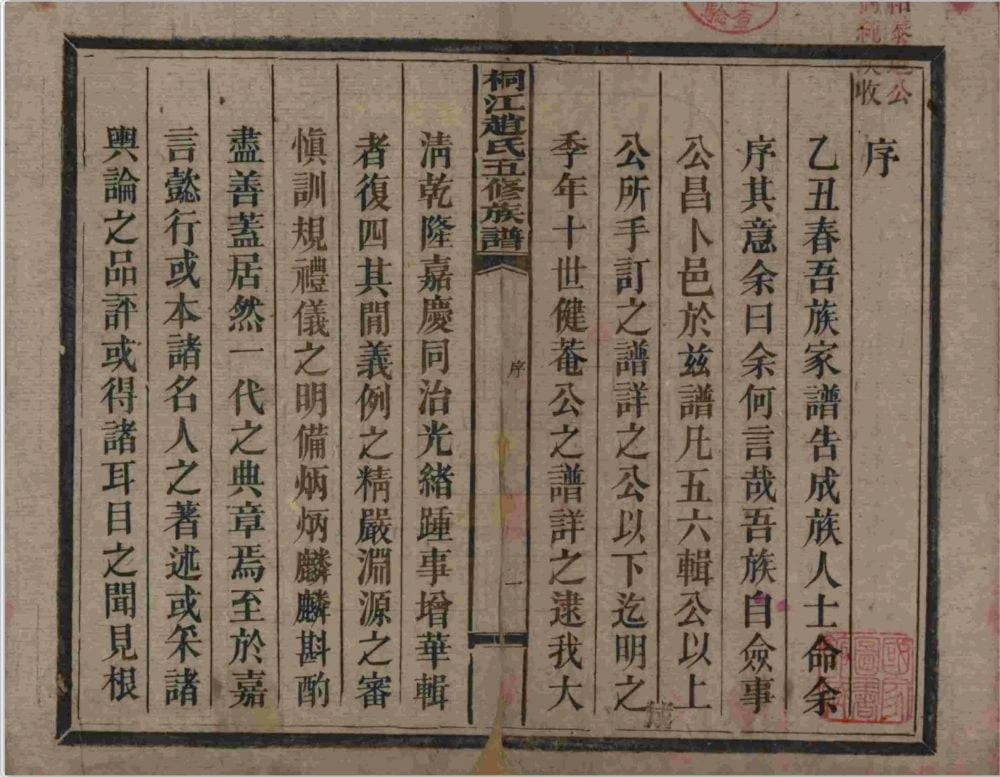 序
乙丑春吾族家譜告成族人士命余
序其意余曰余何言哉吾族自僉事
公昌卜邑於茲譜凡五六輯公以上
公所手訂之譜詳之公以下迄明之
季年十世健菴公之譜詳之逮我大
桐江趙氏五修族譜
序
一
清乾隆嘉慶同治光緒踵事增華輯
者復四其間義例之精嚴淵源之審
慎訓規禮儀之明備炳炳麟麟斟酌
盡善蓋居然一代之典章焉至於嘉
言懿行或本諸名人之著述或采諸
輿論之品評或得諸耳目之聞見根